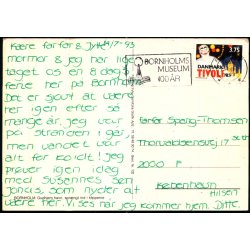 Kære farfar & Jytte 4/7-93
mormor & jeg har lige
taget os en 8 dags
ferie her på Bornholm
Det er sjovt at være
her igen efter så
mange år, jeg var
på stranden i går
men vandet var
alt for koldt! Jeg
prøver igen idag
med Susannes søn
Jonas, som nyder at
være her. Vi ses når jeg kommer hjem. Ditte.
BORNHOLMS
MUSEUM
100 ÅR
3.75
DANMARK
TIVOLI
farfar
Thorvaldsensvej
2000 F
København
Hilsen
BORNHOLM